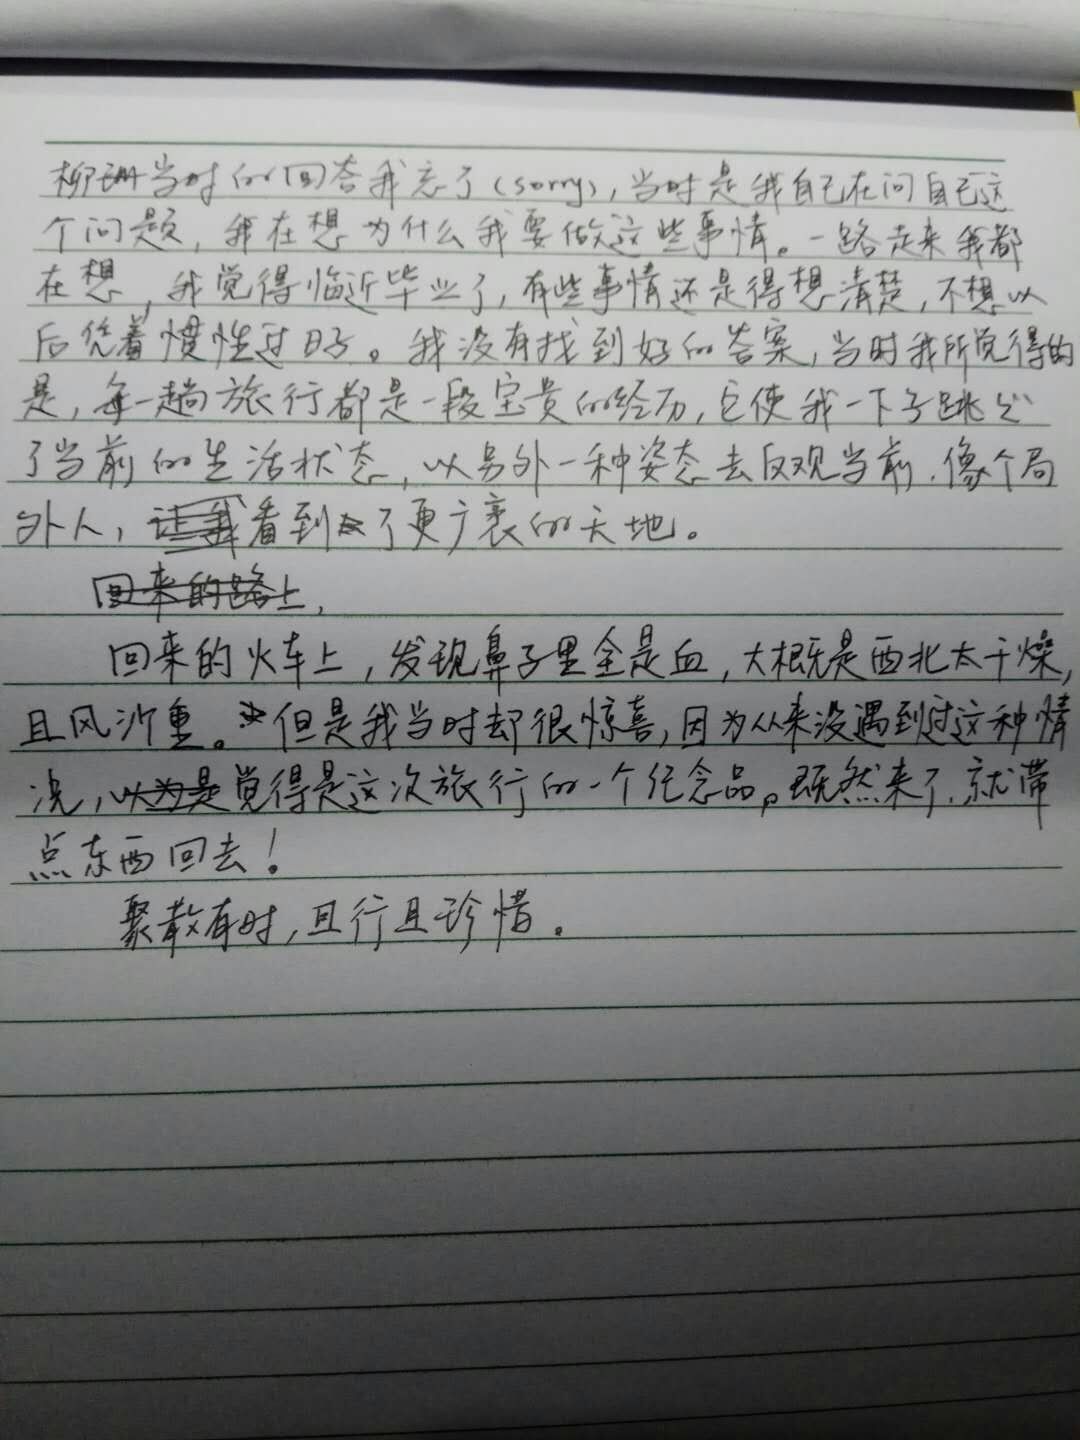 柳珊当时的回答我忘了(sorry),当时是我自己在问自己这
个问题,我在想为什么我要做这些事情。一路走来我都
在想,我觉得临近毕业了,有些事情还是得想清楚,不想以
后凭着惯性过日子。我没有找到好的答案,当时我所觉得的
是,每一趟旅行都是一段宝贵的经历,它使我一下子跳出
了当前的生活状态,以另外一种姿态去反观当前,像个局
外人,让我看到了更广袤的天地。
回来的路上,
回来的火车上,发现鼻子里全是血,大概是西北太干燥,
且风沙重。但是我当时却很惊喜,因为从来没遇到过这种情
况,以为是觉得是这次旅行的一个纪念品。既然来了,就带
点东西回去!
聚散有时,且行且珍惜。